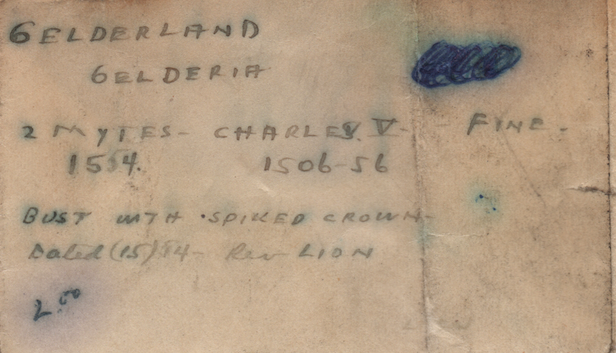 GELDERLAND
GELDERIA
2 MYTES- CHARLES V- FINE-
1554. 1506-56
BUST WITH SPIKED CROWN-
Dated (15)54- Rev LION
2.00